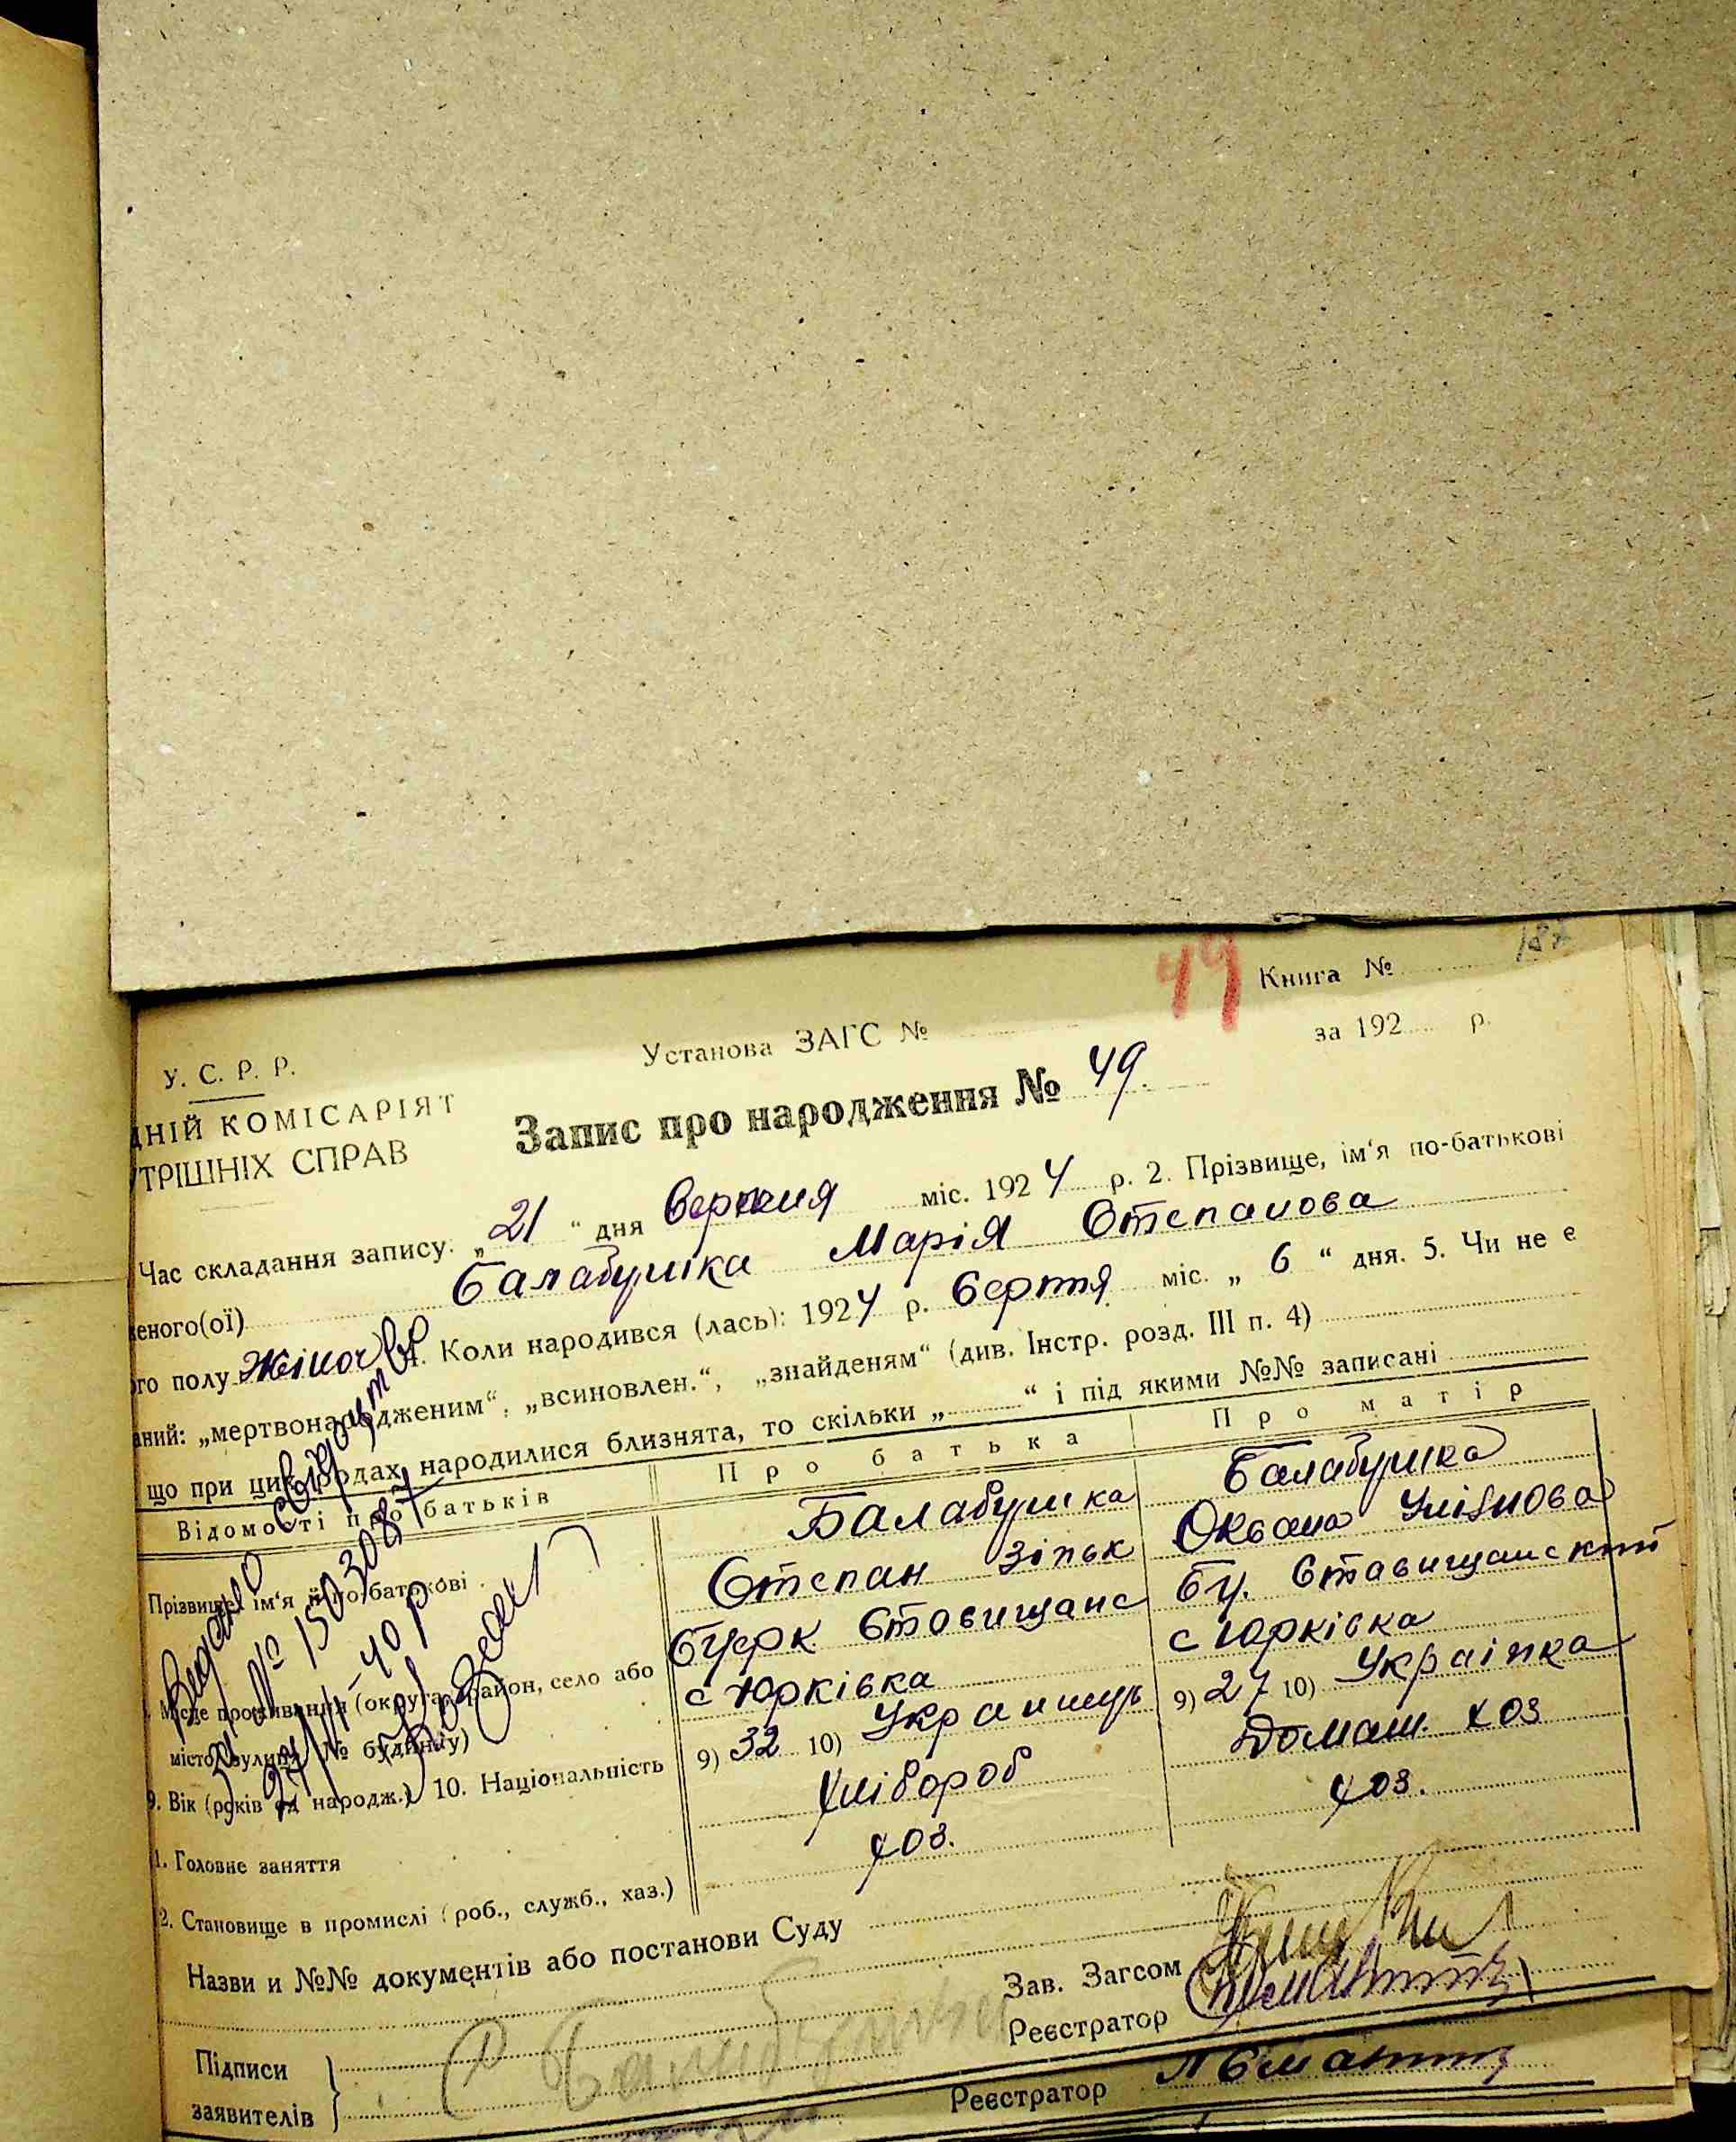 187
49 Книга №
Установа ЗАГС №
за 192 р.
У. С. Р. Р.
ДНІЙ КОМІСАРІЯТ
ТРІШНІХ СПРАВ
Запис про народження № 49.
Час складання запису: „21“ дня Серпня міс. 1924 р. 2. Прізвище, ім‘я по-батькові
еного(ої) Балабушка Марія Степанова
го полу Жіноч 4. Коли народився (лась): 1924 р. Серпня міс. „ 6 “ дня. 5. Чи не є
аний: „мертвонародженим“, „всиновлен.“, „знайденям“ (див. Інстр. розд. III п. 4)
що при цих родах народилися близнята, то скільки „ “ і під якими №№ записані
Відомості про батьків Про батька Про матір
Балабушка Балабушка
Прізвище, ім‘я й по-батькові Степан Зіньк Оксана
Місце проживання (округа, район, село або Стовищанс Бц. Ставищанский
місто, вулиця, № будинку) с Юрківка с Юрківка
9. Вік (років од народж.) 10. Національність 9) 32 10) Украинець 9) 27 10) Украінка
1. Головне заняття Хлібороб Домаш. хоз
2. Становище в промислі (роб., служб., хаз.) хоз. хоз.
Видано свідоцтво
№ 1503087
40 р
Назви и №№ документів або постанови Суду
Зав. Загсом
Реєстратор
Підписи
заявителів
Реєстратор